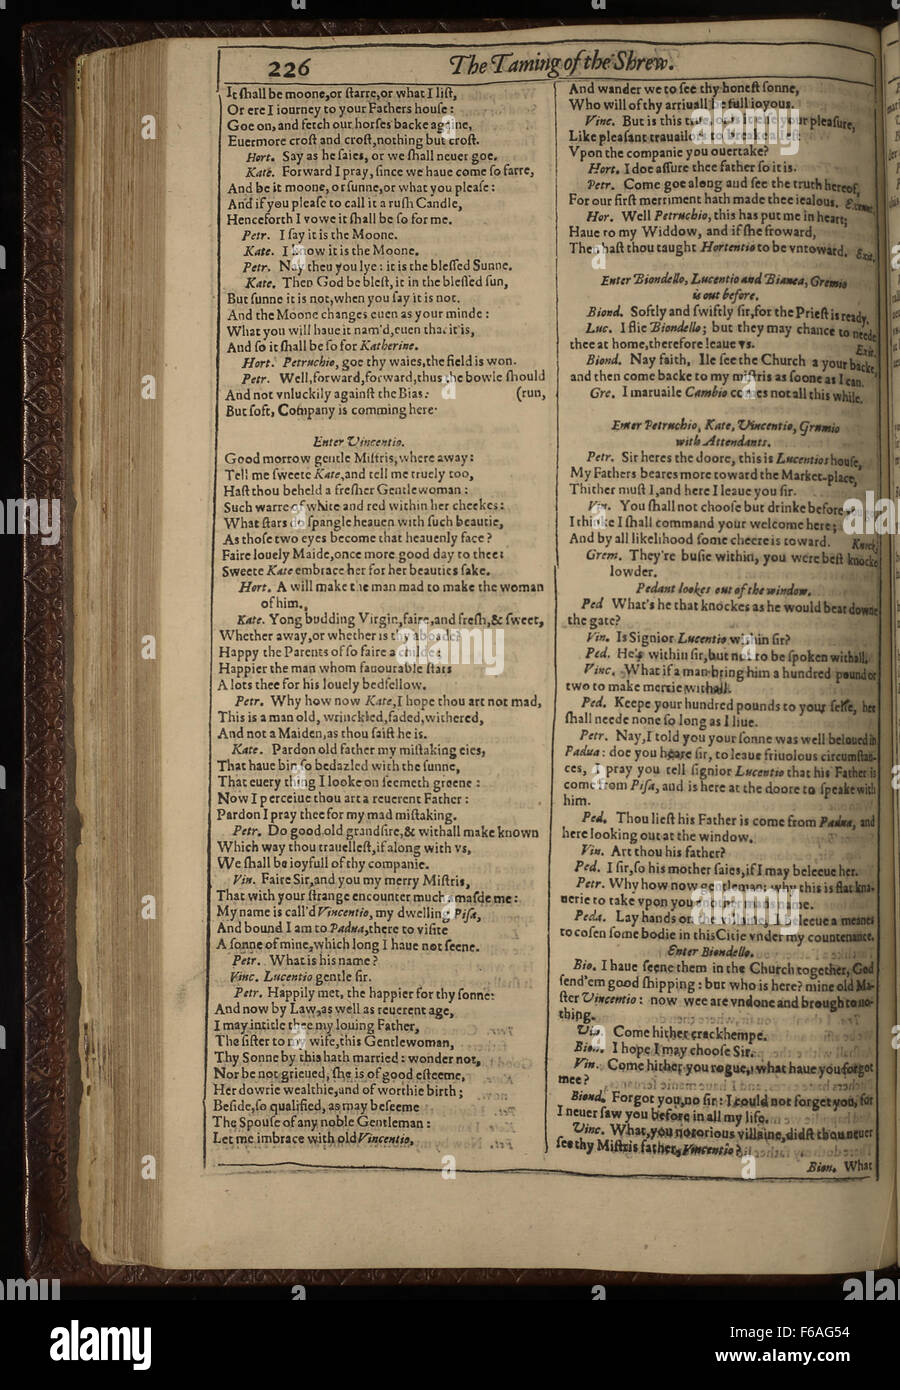 226 The Taming of the Shrew.
It ſhall be moone, or ſtarre, or what I liſt,
Or ere I iourney to your Fathers houſe:
Goe on, and fetch our horſes backe againe,
Euermore croſt and croſt, nothing but croſt.
Hort. Say as he ſaies, or we ſhall neuer goe.
Kate. Forward I pray, ſince we haue come ſo farre,
And be it moone, or ſunne, or what you pleaſe:
And if you pleaſe to call it a ruſh Candle,
Henceforth I vowe it ſhall be ſo for me.
Petr. I ſay it is the Moone.
Kate. I know it is the Moone.
Petr. Nay then you lye: it is the bleſſed Sunne.
Kate. Then God be bleſt, it in the bleſſed ſun,
But ſunne it is not, when you ſay it is not.
And the Moone changes euen as your minde:
What you will haue it nam'd, euen that it is,
And ſo it ſhall be ſo for Katherine.
Hort. Petruchio, goe thy waies, the field is won.
Petr. Well, forward, forward, thus the bowle ſhould
And not vnluckily againſt the Bias: (run,
But ſoft, Company is comming here.
Enter Vincentio.
Good morrow gentle Miſtris, where away:
Tell me ſweete Kate, and tell me truely too,
Haſt thou beheld a freſher Gentlewoman:
Such warre of white and red within her cheekes:
What ſtars do ſpangle heauen with ſuch beautie,
As thoſe two eyes become that heauenly face?
Faire louely Maide, once more good day to thee:
Sweete Kate embrace her for her beauties ſake.
Hort. A will make the man mad to make the woman
of him.
Kate. Yong budding Virgin, faire, and freſh, & ſweet,
Whether away, or whether is thy aboade?
Happy the Parents of ſo faire a childe;
Happier the man whom fauourable ſtars
A lots thee for his louely bedfellow.
Petr. Why how now Kate, I hope thou art not mad,
This is a man old, wrinckled, faded, withered,
And not a Maiden, as thou ſaiſt he is.
Kate. Pardon old father my miſtaking eies,
That haue bin ſo bedazled with the ſunne,
That euery thing I looke on ſeemeth greene:
Now I perceiue thou art a reuerent Father:
Pardon I pray thee for my mad miſtaking.
Petr. Do good old grandſire, & withall make known
Which way thou trauelleſt, if along with vs,
We ſhall be ioyfull of thy companie.
Vin. Faire Sir, and you my merry Miſtris,
That with your ſtrange encounter much amaſde me:
My name is call'd Vincentio, my dwelling Piſa,
And bound I am to Padua, there to viſite
A ſonne of mine, which long I haue not ſeene.
Petr. What is his name?
Vinc. Lucentio gentle ſir.
Petr. Happily met, the happier for thy ſonne:
And now by Law, as well as reuerent age,
I may intitle thee my louing Father,
The ſiſter to my wife, this Gentlewoman,
Thy Sonne by this hath married: wonder not,
Nor be not grieued, ſhe is of good eſteeme,
Her dowrie wealthie, and of worthie birth;
Beſide, ſo qualified, as may beſeeme
The Spouſe of any noble Gentleman:
Let me imbrace with old Vincentio,
And wander we to ſee thy honeſt ſonne,
Who will of thy arriuall be full ioyous.
Vinc. But is this true, or is it elſe your pleaſure,
Like pleaſant trauailors to breake a Ieſt
Vpon the companie you ouertake?
Hort. I doe aſſure thee father ſo it is.
Petr. Come goe along and ſee the truth hereof,
For our firſt merriment hath made thee iealous. Exeunt.
Hor. Well Petruchio, this has put me in heart;
Haue to my Widdow, and if ſhe froward,
Then haſt thou taught Hortentio to be vntoward. Exit.
Enter Biondello, Lucentio and Bianea, Gremio
is out before.
Biond. Softly and ſwiftly ſir, for the Prieſt is ready.
Luc. I flie Biondello; but they may chance to neede
thee at home, therefore leaue vs. Exit.
Biond. Nay faith, Ile ſee the Church a your backe,
and then come backe to my miſtris as ſoone as I can.
Gre. I maruaile Cambio comes not all this while.
Enter Petruchio, Kate, Vincentio, Grumio
with Attendants.
Petr. Sir heres the doore, this is Lucentios houſe,
My Fathers beares more toward the Market-place,
Thither muſt I, and here I leaue you ſir.
Vin. You ſhall not chooſe but drinke before you goe
I thinke I ſhall command your welcome here;
And by all likelihood ſome cheere is toward. Knock.
Grem. They're buſie within, you were beſt knocke
lowder.
Pedant lookes out of the window.
Ped What's he that knockes as he would beat downe
the gate?
Vin. Is Signior Lucentio within ſir?
Ped. He's within ſir, but not to be ſpoken withall.
Vinc. What if a man bring him a hundred pound or
two to make merrie withall.
Ped. Keepe your hundred pounds to your ſelfe, hee
ſhall neede none ſo long as I liue.
Petr. Nay, I told you your ſonne was well beloued in
Padua: doe you heare ſir, to leaue friuolous circumſtan-
ces, I pray you tell ſignior Lucentio that his Father is
come from Piſa, and is here at the doore to ſpeake with
him.
Ped. Thou lieſt his Father is come from Padua, and
here looking out at the window.
Vin. Art thou his father?
Ped. I ſir, ſo his mother ſaies, if I may beleeue her.
Petr. Why how now gentleman: why this is flat kna-
uerie to take vpon you another mans name.
Peda. Lay hands on the villaine, I beleeue a meanes
to coſen ſome bodie in this Citie vnder my countenance.
Enter Biondello.
Bio. I haue ſeene them in the Church together, God
ſend'em good ſhipping: but who is here? mine old Ma-
ſter Vincentio: now wee are vndone and brough to no-
thing.
Vin. Come hither crackhempe.
Bion. I hope I may chooſe Sir.
Vin. Come hither you rogue, what haue you forgot
mee?
Biond. Forgot you, no ſir: I could not forget you, for
I neuer ſaw you before in all my life.
Vinc. What, you notorious villaine, didſt thou neuer
ſee thy Miſtris father, Vincentio?
Bion. What
alamy
alamy stock photo
F6AG54
www.alamy.com